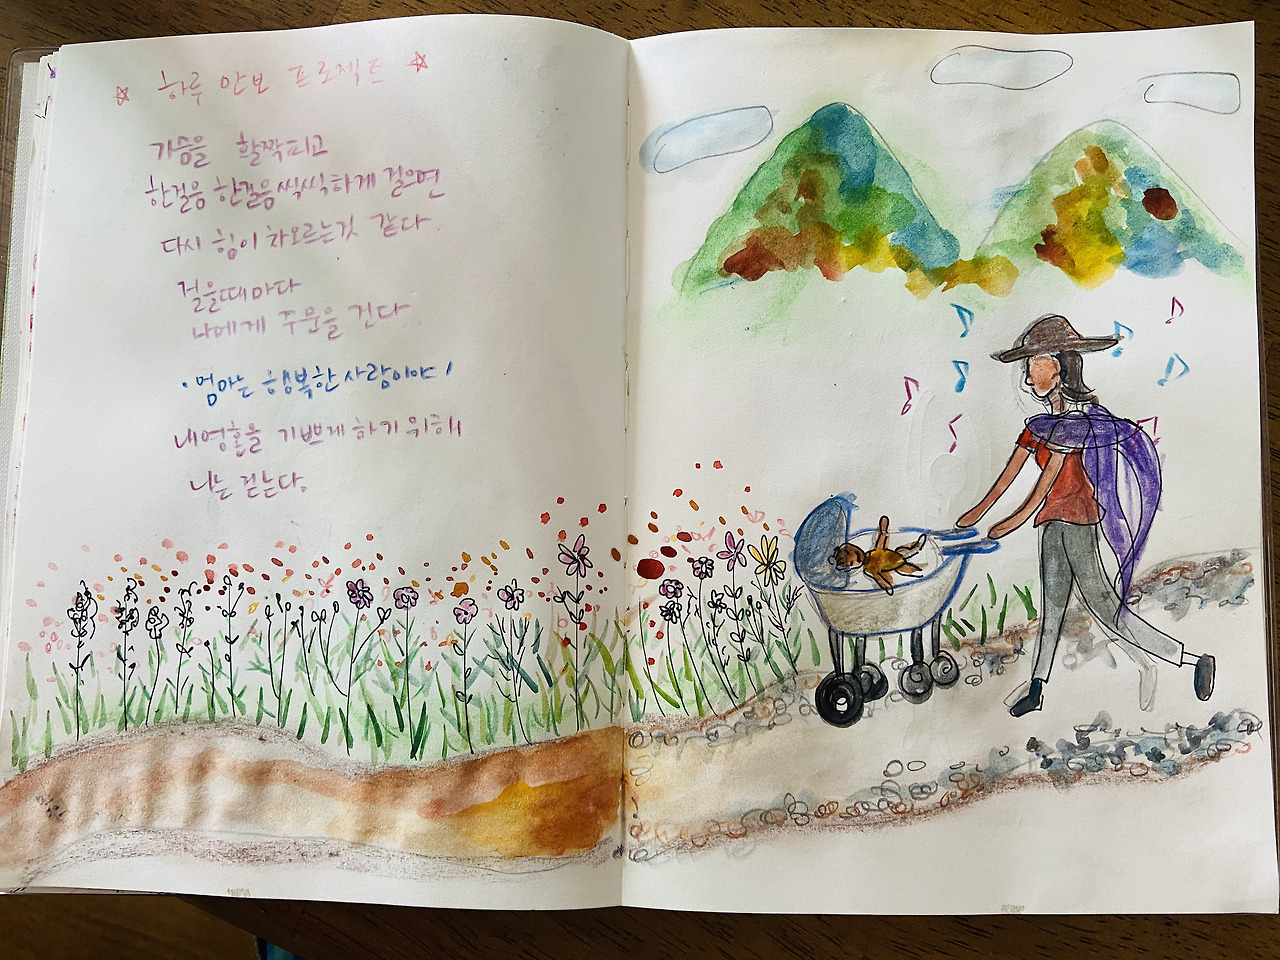 ☆ 하루 만보 프로젝트 ☆
가슴을 활짝피고
한걸음 한걸음 씩씩하게 걸으면
다시 힘이 차오르는것 같다.
걸을때마다
나에게 주문을 건다
· 엄마는 행복한 사람이야!
내영혼을 기쁘게 하기 위해
나는 걷는다.